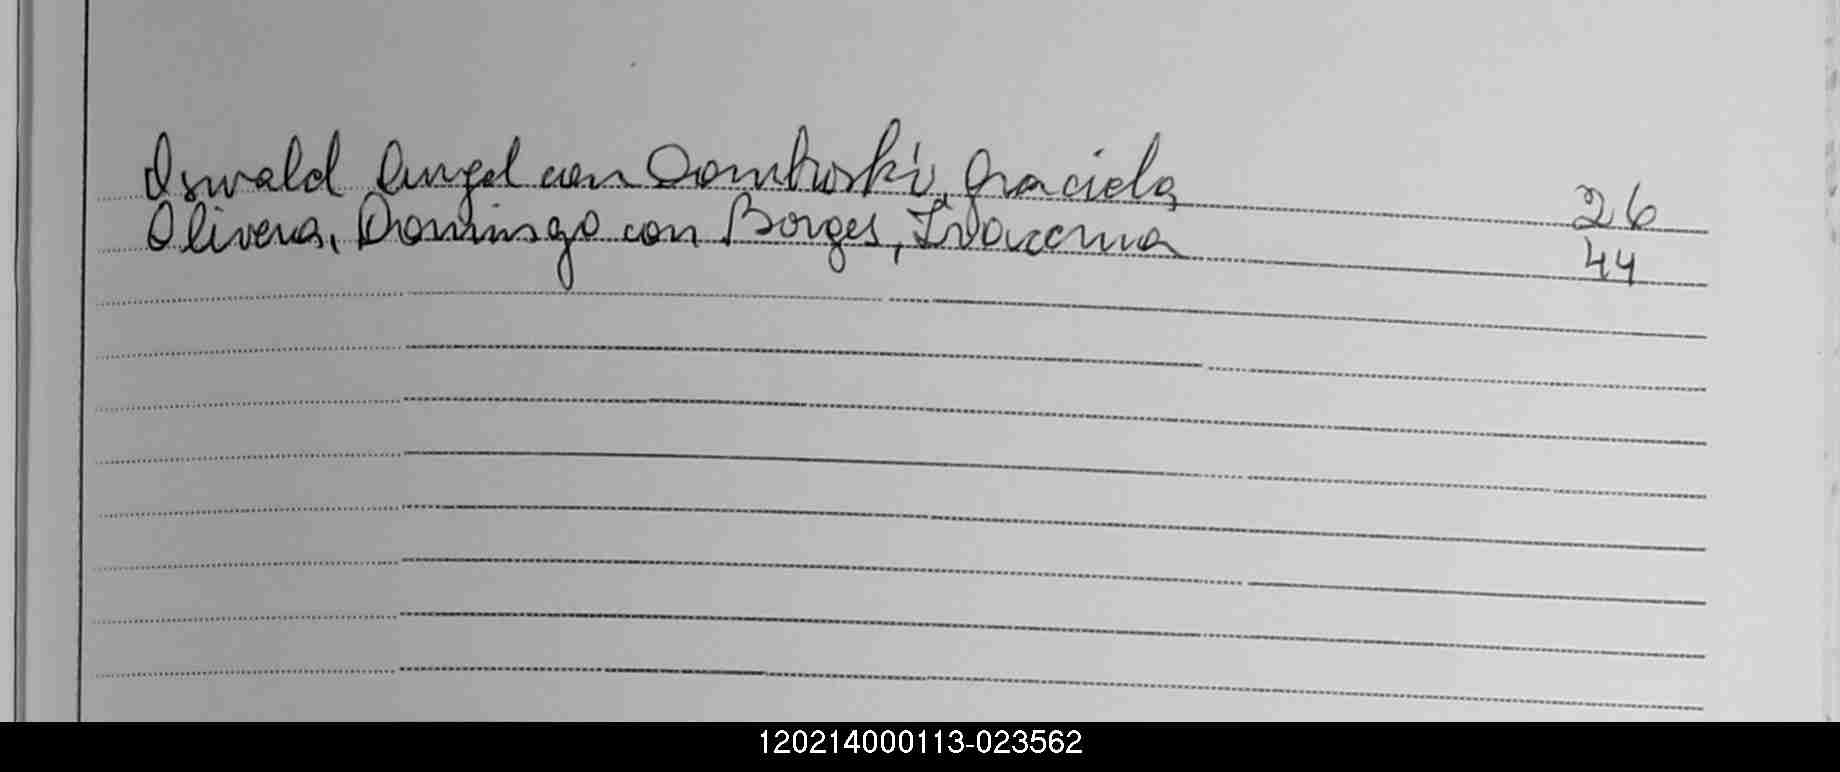 Oswald Angel con Dombroski, Graciela 26
Olivera, Domingo con Borges, 44
120214000113-023562